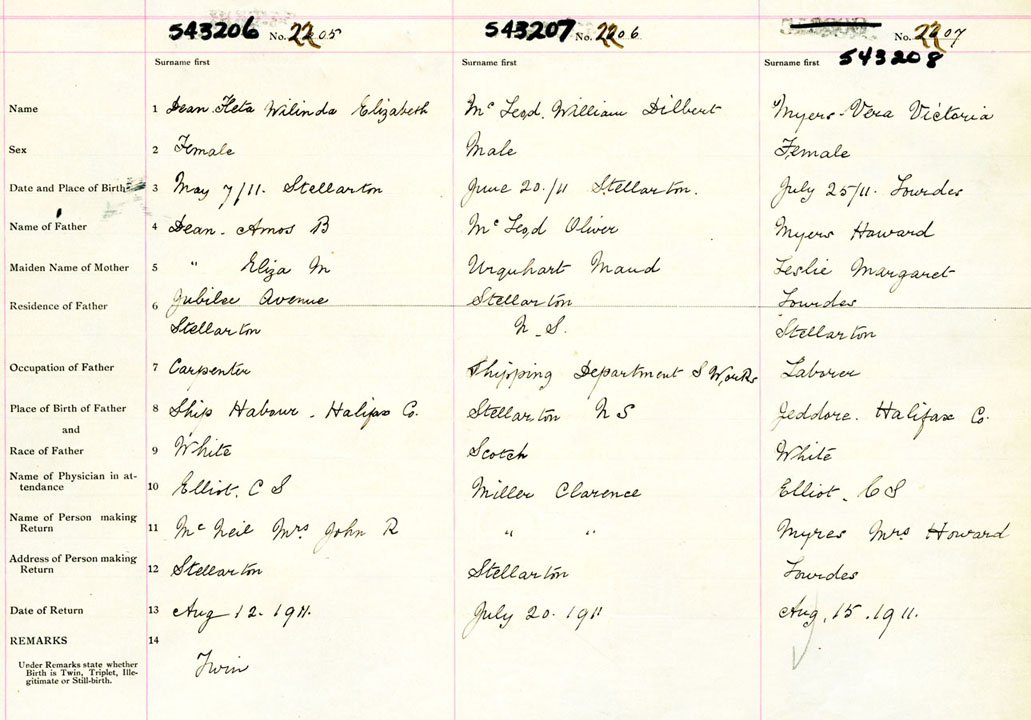 543206 No. 2205 543207 No. 2206 No. 2207
Surname first Surname first Surname first 543208
Name 1 Dean Heta Wilinda Elizabeth Mc Leod. William Dilbert Myers Vera Victoria
Sex 2 Female Male Female
Date and Place of Birth 3 May 7/11. Stellarton June 20/11 Stellarton. July 25/11. Lourdes
Name of Father 4 Dean - Amos B Mc Leod Oliver Myers Howard
Maiden Name of Mother 5 " Eliza M Urquhart Maud Leslie Margaret
Residence of Father 6 Jubilee Avenue Stellarton Lourdes
Stellarton N_S. Stellarton
Occupation of Father 7 Carpenter Shipping Department S Works Laborer
Place of Birth of Father 8 Ship Habour - Halifax Co. Stellarton N S Jeddore. Halifax Co.
and
Race of Father 9 White Scotch White
Name of Physician in at-
tendance 10 Elliot. C S Miller Clarence Elliot. C S
Name of Person making
Return 11 Mc Neil Mrs John R " " Myres Mrs Howard
Address of Person making
Return 12 Stellarton Stellarton Lourdes
Date of Return 13 Aug 12. 1911. July 20. 1911 Aug. 15. 1911.
REMARKS 14
Under Remarks state whether
Birth is Twin, Triplet, Ille-
gitimate or Still-birth.
Twin